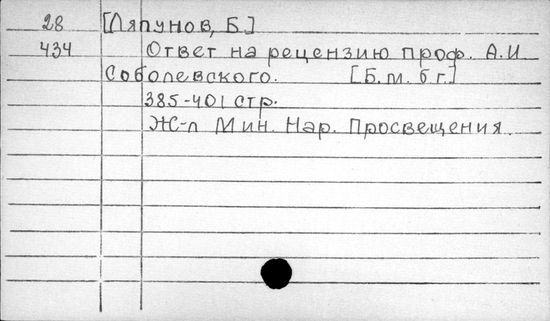 28 [Ляпунов, Б.]
434 Ответ на рецензию проф. А.И
Соболевского. [Б.м. б г.]
385-401 стр.
Ж-л Мин. Нар. Просвещения.